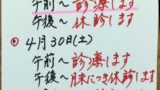 午前〜診療します
午後〜休診します
4月30日(土)
午前〜診療します
午後〜
につき休診します